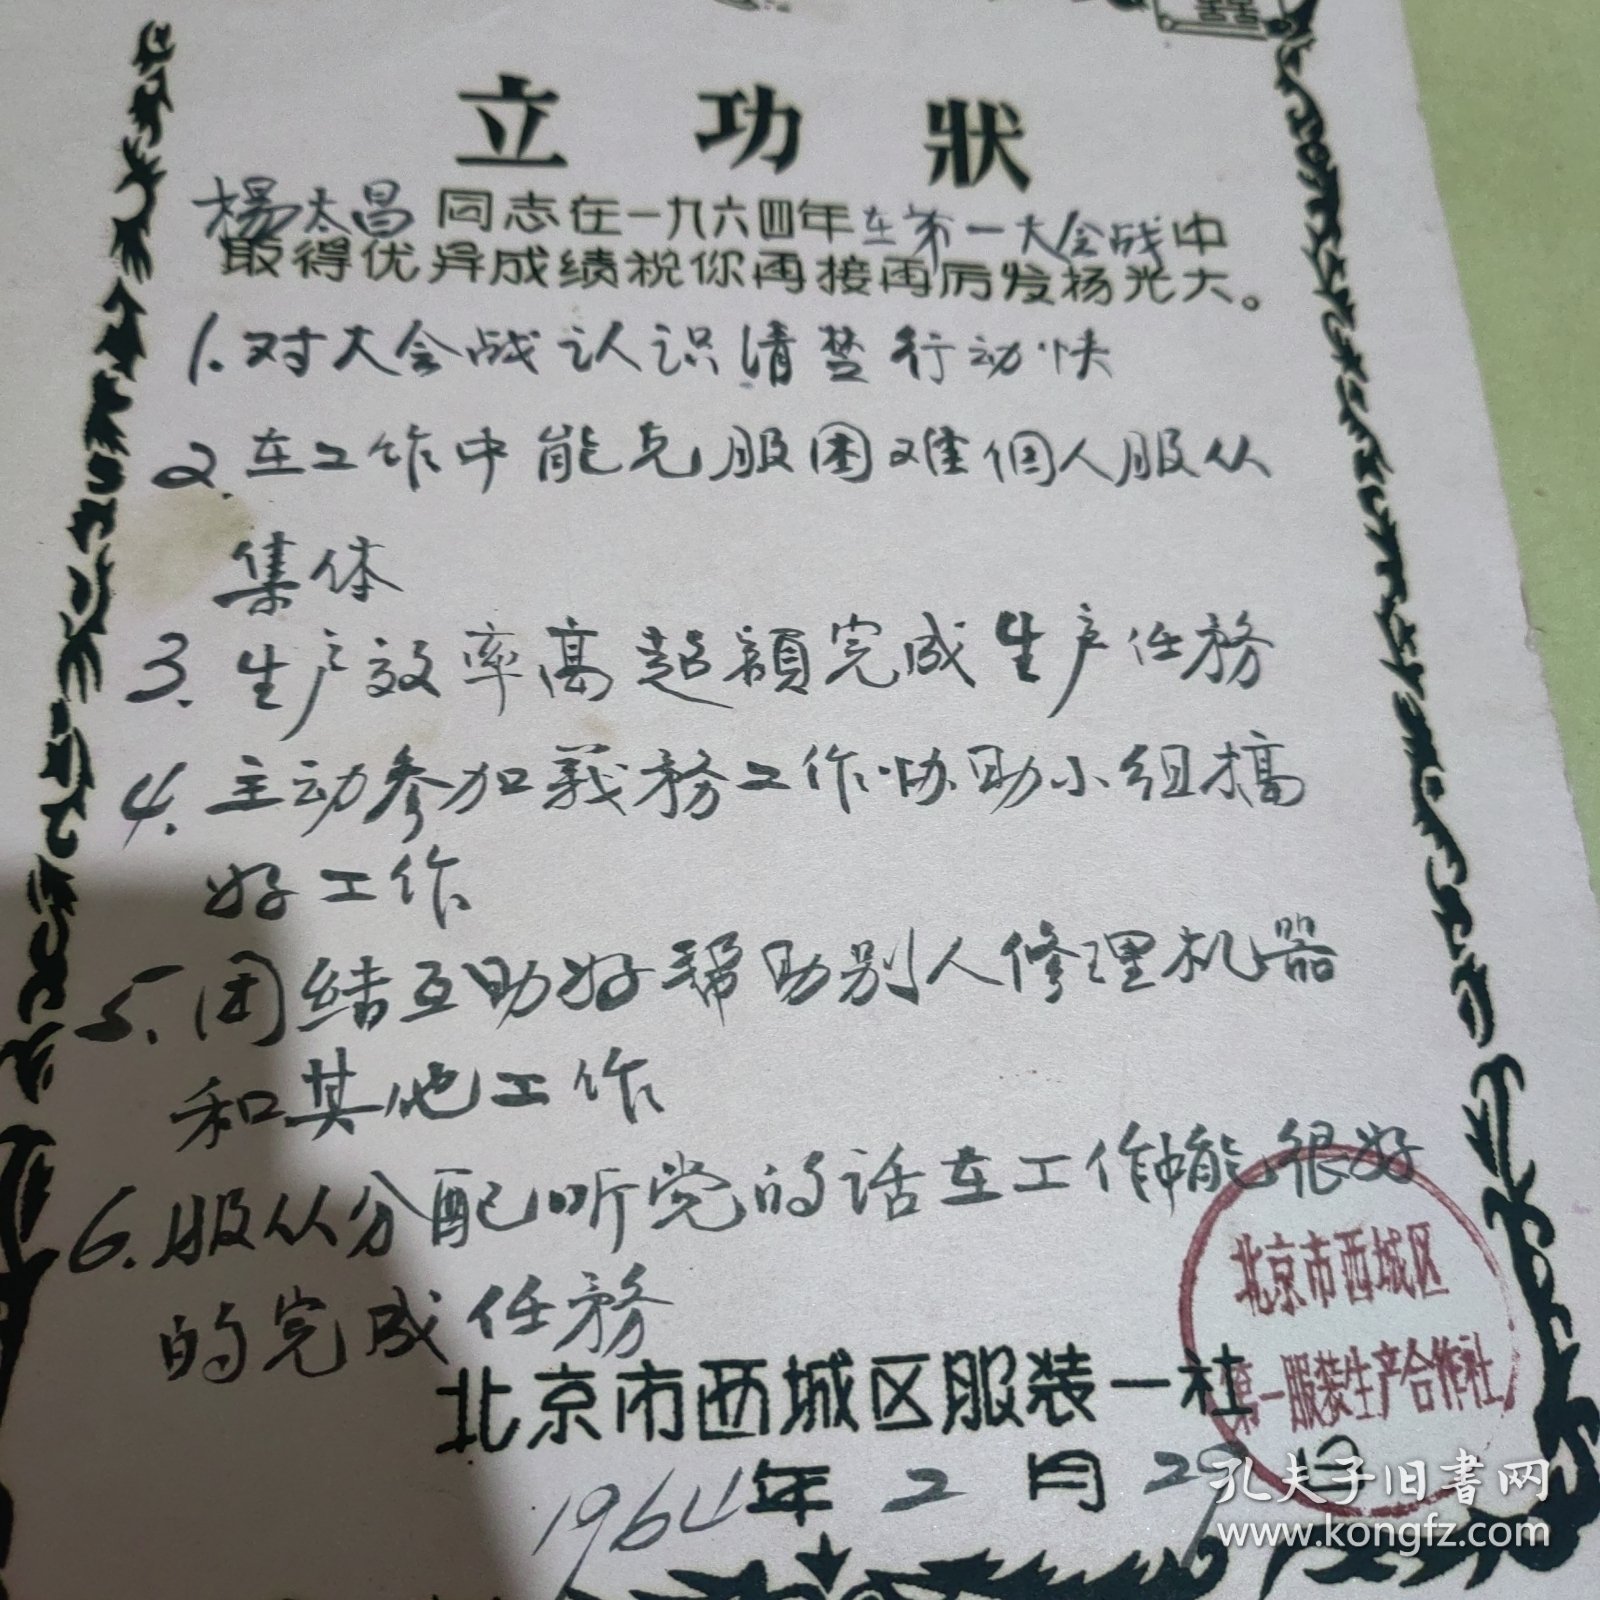 立功狀
楊太昌同志在一九六四年在第一大会战中
取得优异成绩祝你再接再厉发扬光大。
1.对大会战认识清楚行动快
2.在工作中能克服困难個人服从
集体
3.生产效率高超額完成生产任務
4.主动参加義務工作协助小组搞
好工作
5.团结互助好帮助别人修理机器
和其他工作
6.服从分配听党的话在工作中能很好
的完成任務
北京市西城区
第一服装生产合作社
北京市西城区服装一社
1964年2月29日
孔夫子旧書网
www.kongfz.com